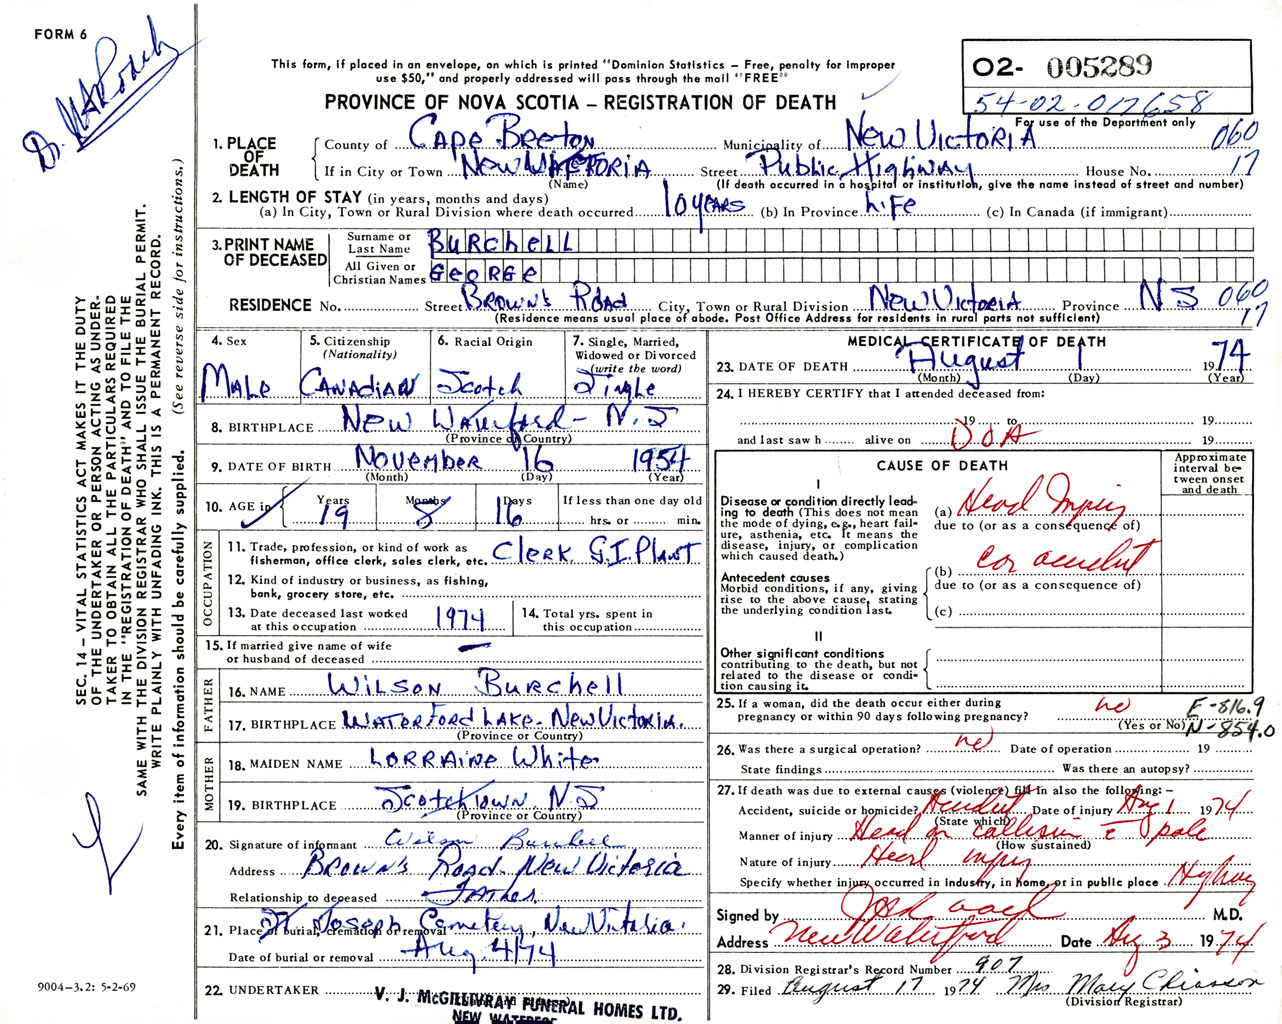 FORM 6
This form, if placed in an envelope, on which is printed "Dominion Statistics – Free, penalty for improper
use $50," and properly addressed will pass through the mail "FREE"
PROVINCE OF NOVA SCOTIA – REGISTRATION OF DEATH
O2- 005289
54-02-017658
For use of the Department only
060
17
1. PLACE OF DEATH
County of Cape Breton Municipality of New Victoria
If in City or Town New Victoria Street Public Highway House No.
(Name) (If death occurred in a hospital or institution, give the name instead of street and number)
2. LENGTH OF STAY (in years, months and days)
(a) In City, Town or Rural Division where death occurred 10 years (b) In Province Life (c) In Canada (if immigrant)
3. PRINT NAME OF DECEASED
Surname or Last Name Burchell
All Given or Christian Names George
RESIDENCE No. Street Brown's Road City, Town or Rural Division New Victoria Province N S 060
17
(Residence means usual place of abode. Post Office Address for residents in rural parts not sufficient)
4. Sex
Male
5. Citizenship
(Nationality)
Canadian
6. Racial Origin
Scotch
7. Single, Married,
Widowed or Divorced
(write the word)
Single
8. BIRTHPLACE New Waterford - N.S
(Province or Country)
9. DATE OF BIRTH November 16 1954
(Month) (Day) (Year)
10. AGE in Years 19 Months 8 Days 16
If less than one day old
hrs. or min.
OCCUPATION
11. Trade, profession, or kind of work as
fisherman, office clerk, sales clerk, etc. Clerk G.I. Plant
12. Kind of industry or business, as fishing,
bank, grocery store, etc.
13. Date deceased last worked
at this occupation 1974
14. Total yrs. spent in
this occupation
15. If married give name of wife
or husband of deceased —
FATHER
16. NAME Wilson Burchell
17. BIRTHPLACE Waterford Lake - New Victoria.
(Province or Country)
MOTHER
18. MAIDEN NAME Lorraine White
19. BIRTHPLACE Scotchtown N.S
(Province or Country)
20. Signature of informant Wilson Burchell
Address Brown's Road New Victoria
Relationship to deceased Father
21. Place of burial, cremation or removal St Joseph Cemetery, New Victoria.
Date of burial or removal Aug. 4/74
22. UNDERTAKER V. J. McGILLIVRAY FUNERAL HOMES LTD.
NEW WATERFORD
MEDICAL CERTIFICATE OF DEATH
23. DATE OF DEATH August 1 1974
(Month) (Day) (Year)
24. I HEREBY CERTIFY that I attended deceased from:
19 to 19
and last saw h alive on DOA 19
CAUSE OF DEATH
Approximate interval between onset and death
I
Disease or condition directly leading to death (This does not
mean the mode of dying, e.g., heart failure, asthenia, etc. It means the
disease, injury, or complication
which caused death.)
(a) Head Injury
due to (or as a consequence of)
Antecedent causes
Morbid conditions, if any, giving
rise to the above cause, stating
the underlying condition last.
(b) car accident
due to (or as a consequence of)
(c)
II
Other significant conditions
contributing to the death, but not
related to the disease or condition causing it.
25. If a woman, did the death occur either during
pregnancy or within 90 days following pregnancy? no
(Yes or No)
E-816.9
N-854.0
26. Was there a surgical operation? no Date of operation 19
State findings Was there an autopsy?
27. If death was due to external causes (violence) fill in also the following: –
Accident, suicide or homicide? Accident Date of injury Aug 1 1974
(State which)
Manner of injury Head on collision c̄ pole
(How sustained)
Nature of injury Head injury
Specify whether injury occurred in industry, in home, or in public place Highway
Signed by M.D.
Address New Waterford Date Aug 3 1974
28. Division Registrar's Record Number 907
29. Filed August 17 1974 Mrs Mary Chiasson
(Division Registrar)
SEC. 14 – VITAL STATISTICS ACT MAKES IT THE DUTY
OF THE UNDERTAKER OR PERSON ACTING AS UNDER-
TAKER TO OBTAIN ALL THE PARTICULARS REQUIRED
IN THE "REGISTRATION OF DEATH" AND TO FILE THE
SAME WITH THE DIVISION REGISTRAR WHO SHALL ISSUE THE BURIAL PERMIT.
WRITE PLAINLY WITH UNFADING INK. THIS IS A PERMANENT RECORD.
Every item of information should be carefully supplied. (See reverse side for instructions.)
9004-3.2: 5-2-69